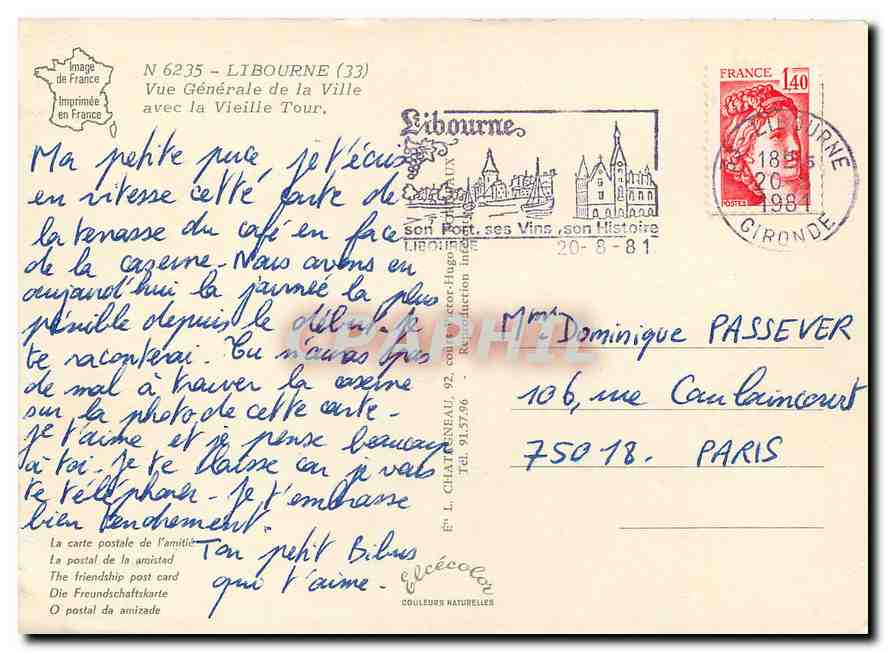 Image
de France
Imprimée
en France
N 6235 - LIBOURNE (33)
Vue Générale de la Ville
avec la Vieille Tour.
Ma petite puce, je t'écris
en vitesse cette carte de
la terrasse du café en face
de la caserne - Nous avons eu
aujourd'hui la journée la plus
pénible depuis le début. Je
te raconterai. Tu n'auras pas
de mal à trouver la caserne
sur la photo de cette carte -
Je t'aime et je pense beaucoup
à toi - Je te laisse car je vais
te téléphoner - Je t'embrasse
bien tendrement.
Ton petit Bibus
qui t'aime -
La carte postale de l'amitié
La postal de la amistad
The friendship post card
Die Freundschaftskarte
O postal da amizade
Elcécolor
COULEURS NATURELLES
Éts L. CHATAGNEAU, 92, cours Victor-Hugo
Tél. 91.57.96 - Reproduction
CPAPHIL
Libourne
son Port, ses Vins, son Histoire
LIBOURNE 20-8-81
FRANCE
1,40
POSTES
LIBOURNE
18H
20
1981
GIRONDE
Mme Dominique PASSEVER
106, rue Caulaincourt
75018. PARIS